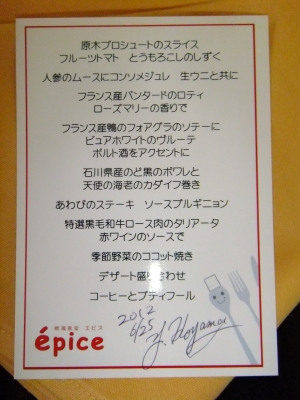 原木プロシュートのスライス
フルーツトマト　とうもろこしのしずく
人参のムースにコンソメジュレ　生ウニと共に
フランス産パンタードのロティ
ローズマリーの香りで
フランス産鴨のフォアグラのソテーに
ピュアホワイトのヴルーテ
ポルト酒をアクセントに
石川県産のど黒のポワレと
天使の海老のカダイフ巻き
あわびのステーキ　ソースブルギニョン
特選黒毛和牛ロース肉のタリアータ
赤ワインのソースで
季節野菜のココット焼き
デザート盛り合わせ
コーヒーとプティフール
2012
6/25
欧風食堂 エピス
épice